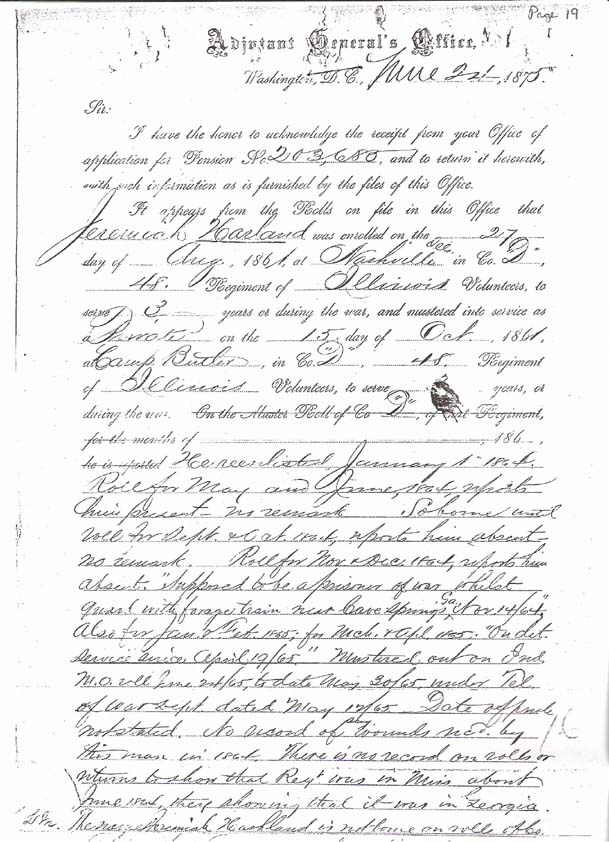 Page 19
Adjutant General's Office,
Washington, D. C., June 2d, 1875.
Sir:
I have the honor to acknowledge the receipt from your Office of
application for Pension No. 203,685, and to return it herewith,
with such information as is furnished by the files of this Office.
It appears from the Rolls on file in this Office that
Jeremiah Harland was enrolled on the 27
day of Aug, 1861, at Nashville in Co. "D",
48. Regiment of Illinois Volunteers, to
serve 3 years or during the war, and mustered into service as
a Private on the 15 day of Oct, 1861,
at Camp Butler, in Co. "D", 48. Regiment
of Illinois Volunteers, to serve years, or
during the war. On the Muster Roll of Co "D", of Regiment,
for the months of , 186 ,
he is reported He reenlisted January 1" 1864.
Roll for May and June, 1864, reports
him present no remark So borne until
roll for Sept. & Oct. 1864, reports him absent
no remark. Roll for Nov & Dec. 1864, reports him
absent. "Supposed to be a prisoner of war whilst
guard with forage train near Cave Springs, Ga Nov 14/64,"
Also for Jan. & Feb. 1865; for Mch. & Apl 1865. "On det.
service since April 19/65." Mustered out on Ind.
M.O. roll June 24/65, to date May 30/65 under Tel.
of War Dept. dated May 12/65 Date of
not stated. No record of wounds by
this man in 1864. There is no record on rolls or
returns to show that Reg't was in Miss about
June 1864, they showing that it was in Georgia.
The name Jeremiah Harkland is not borne on rolls of Co.